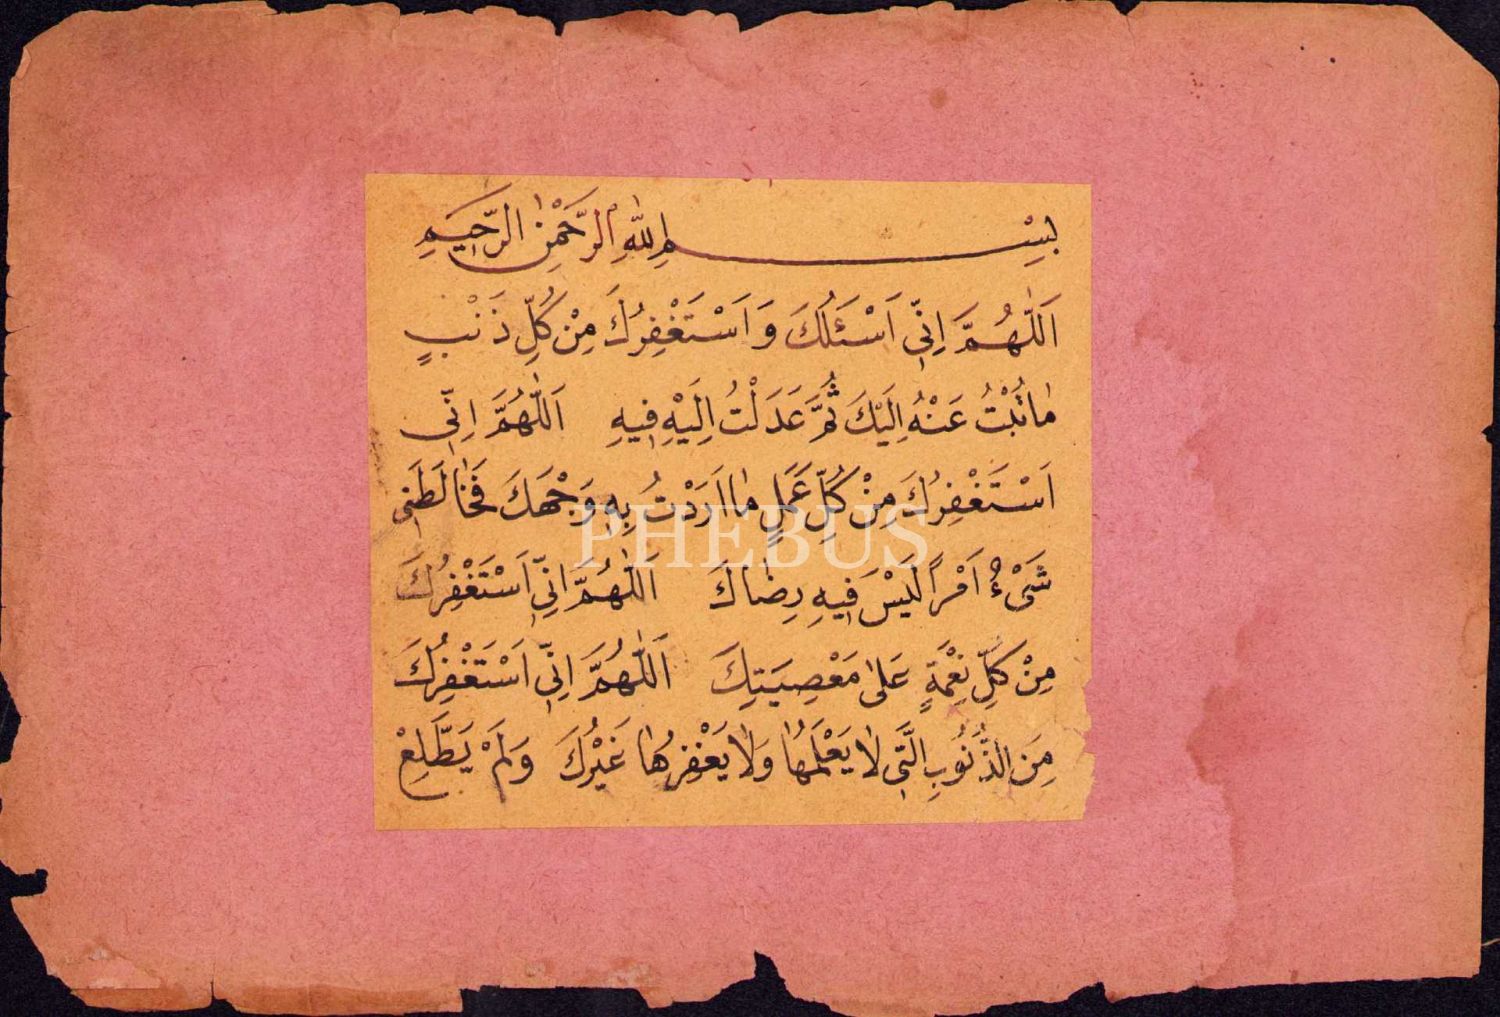 بِسْمِ اللّٰهِ الرَّحْمٰنِ الرَّحِيمِ
اَللّٰهُمَّ اِنّٖى اَسْئَلُكَ وَاَسْتَغْفِرُكَ مِنْ كُلِّ ذَنْبٍ
مٰا تُبْتُ عَنْهُ اِلَيْكَ ثُمَّ عَدَلْتُ اِلَيْهِ فٖيهِ اَللّٰهُمَّ اِنّٖى
اَسْتَغْفِرُكَ مِنْ كُلِّ عَمَلٍ مٰا اَرَدْتُ بِهٖ وَجْهَكَ فَخٰالَطَنٖى
شَىْءٌ اَمْراً لَيْسَ فٖيهِ رِضٰاكَ اَللّٰهُمَّ اِنّٖى اَسْتَغْفِرُكَ
مِنْ كُلِّ نِعْمَةٍ عَلٰى مَعْصِيَتِكَ اَللّٰهُمَّ اِنّٖى اَسْتَغْفِرُكَ
مِنَ الذُّنُوبِ الَّتٖى لٰا يَعْلَمُهٰا وَلٰا يَغْفِرُهٰا غَيْرُكَ وَلَمْ يَطَّلِعْ
PHEBUS